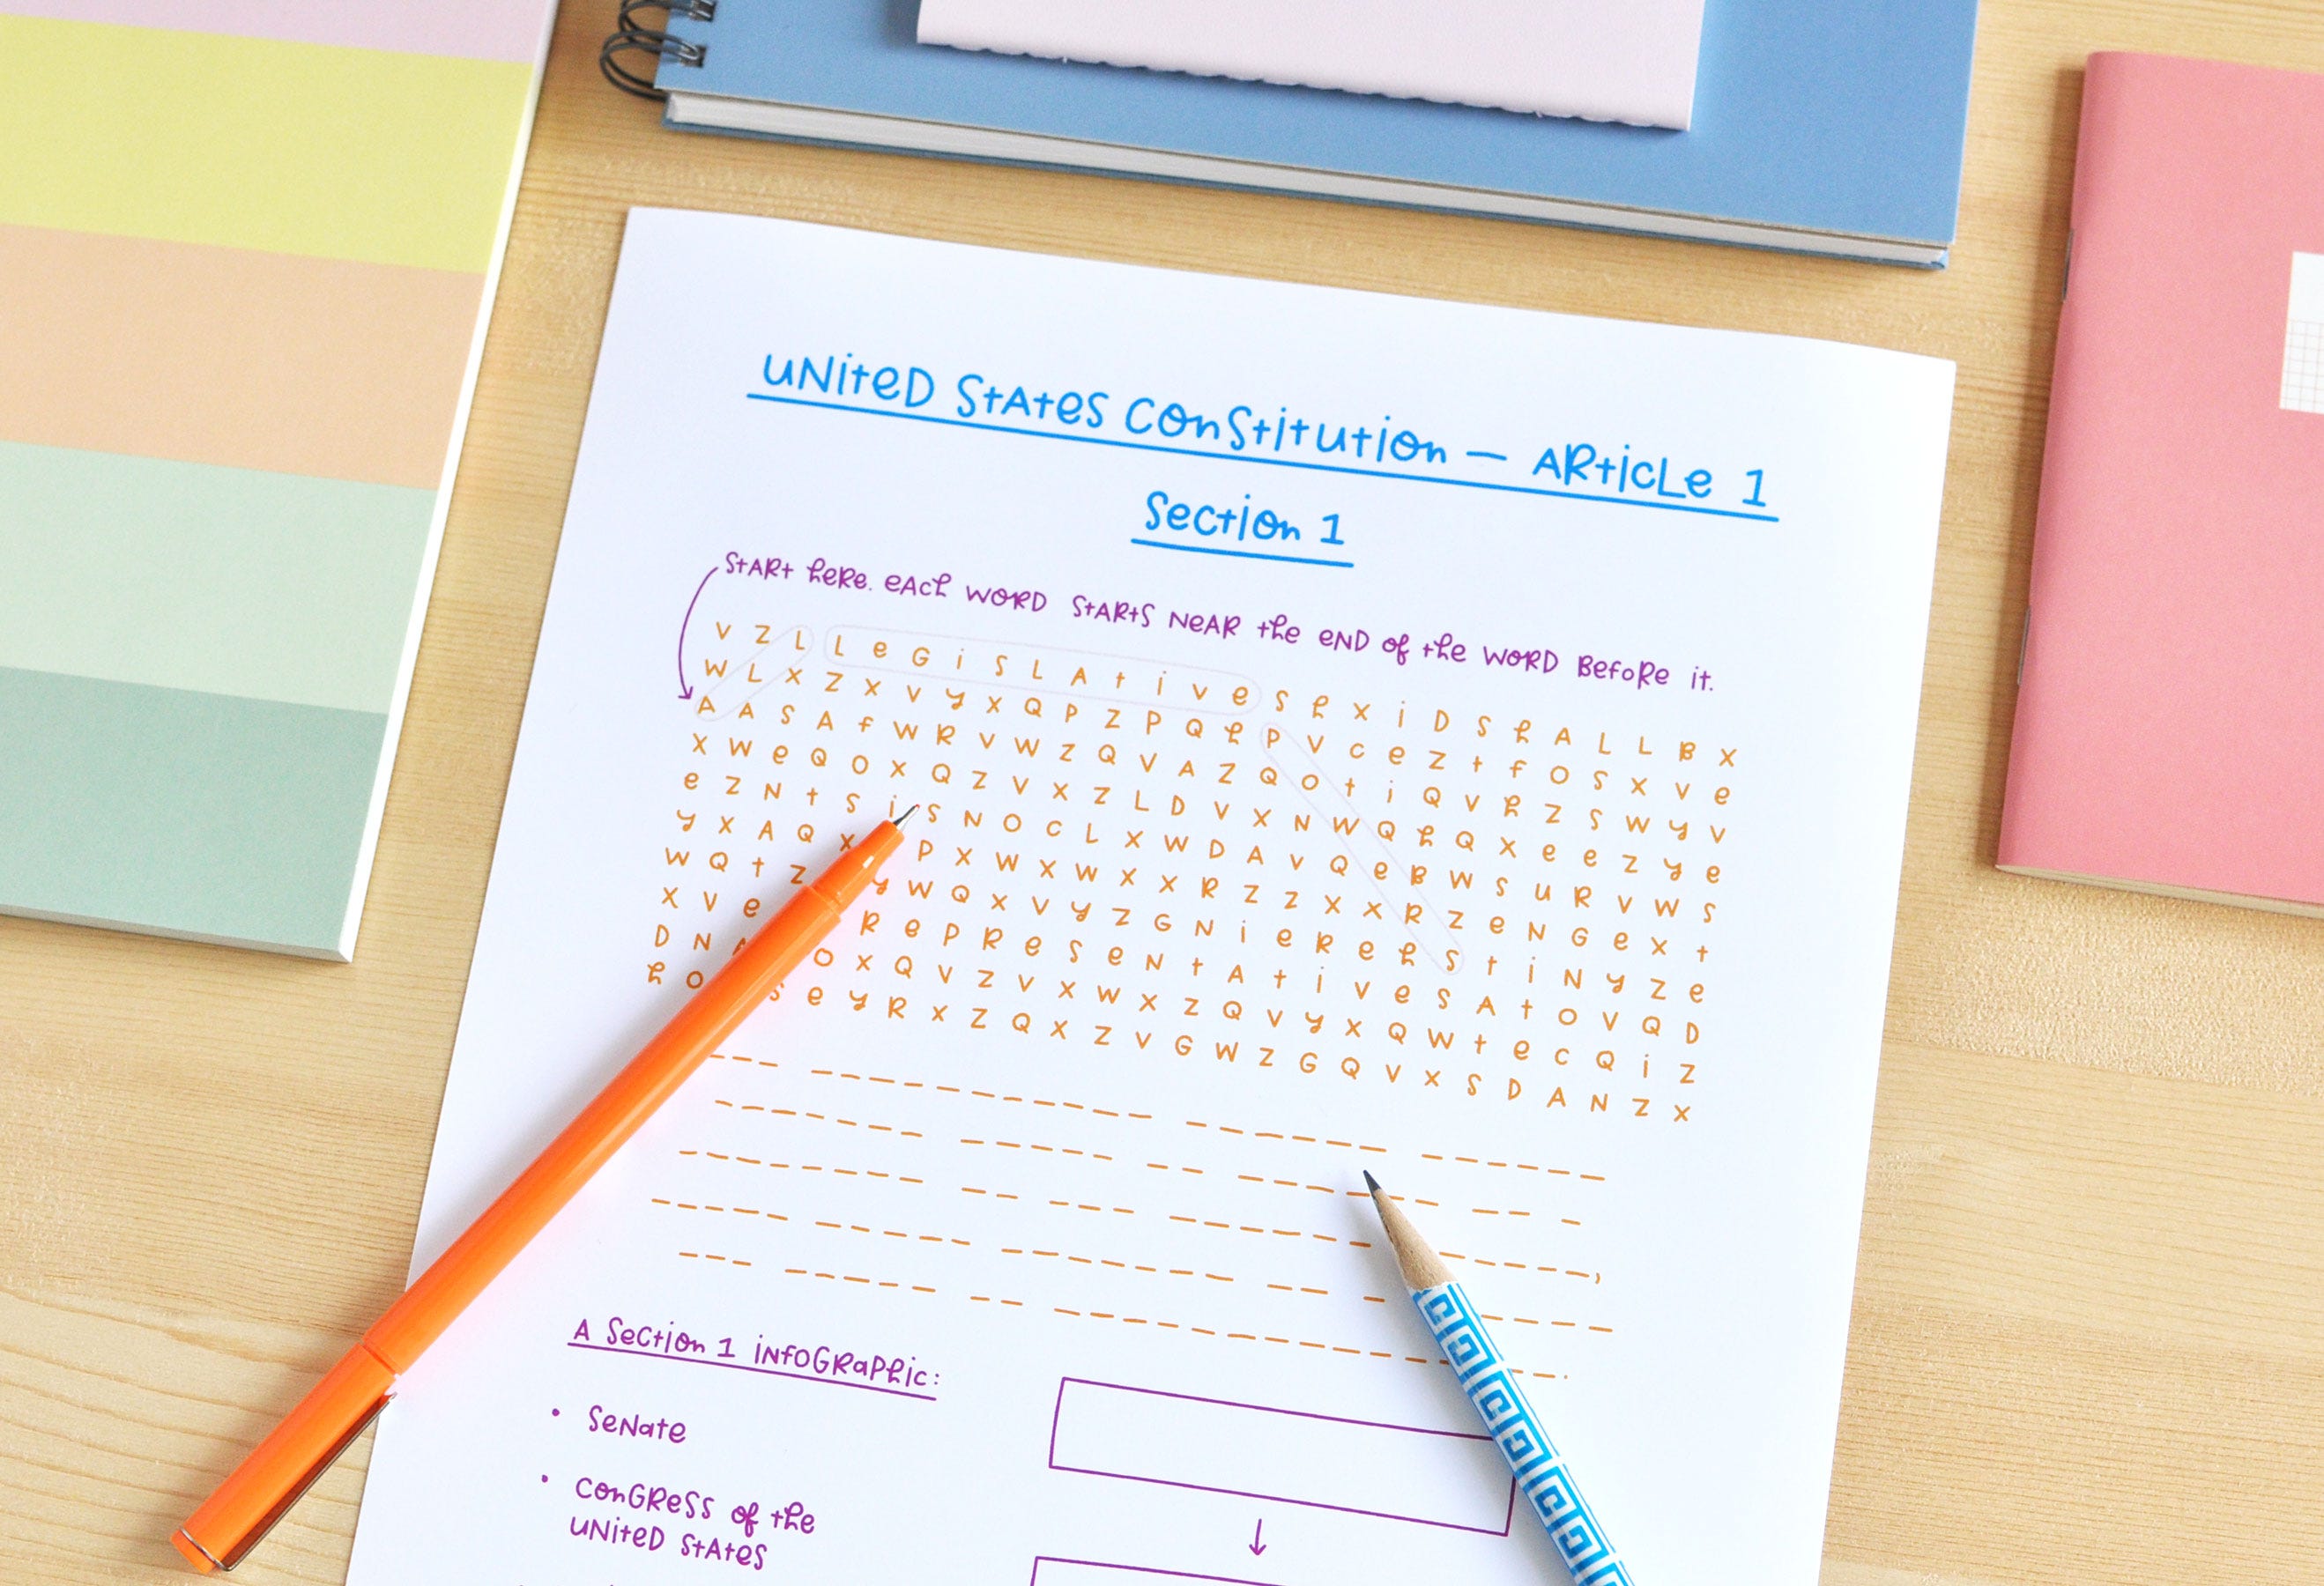 UNITED STATES CONSTITUTION — ARTICLE 1
SECTION 1
START HERE. EACH WORD STARTS NEAR THE END OF THE WORD BEFORE IT.
V Z L L E G I S L A T I V E S H X I D S H A L L B X
W L X Z X V Y X Q P Z P Q H P V C E Z T F O S X V E
A A S A F W R V W Z Q V A Z Q O T I Q V H Z S W Y V
X W E Q O X Q Z V X Z L D V X N W Q H Q X E E Z Y E
E Z N T S I S N O C L X W D A V Q E B W S U R V W S
Y X A Q X P X W X W X X R Z Z X X R Z E N G E X T
W Q T Z Y W Q X V Y Z G N I E R E H S T I N Y Z E
X V E R E P R E S E N T A T I V E S A T O V Q D
D N A O X Q V Z V X W X Z Q V Y X Q W T E C Q I Z
H O S E Y R X Z Q X Z V G W Z G Q V X S D A N Z X
A SECTION 1 INFOGRAPHIC:
• SENATE
• CONGRESS OF THE
UNITED STATES